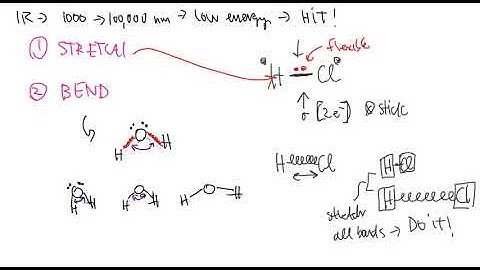 IR → 1000 → 100,000 nm → low energy → HIT!
① STRETCH
flexible
H — Cl
② BEND
σ [2e⁻] ⊗ stick
O
H H
H Cl
H - Cl
H Cl
O H H
O H H
O H H
all bonds → Do it!